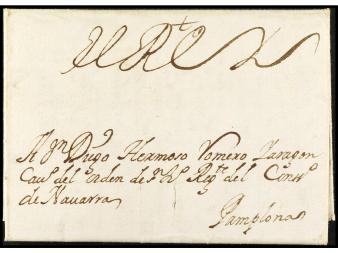 El Rey
A Dn Diego Hermoso Romero y Aragon
Cavo del orden de Sn Regte del Consº
de Navarra
Pamplona